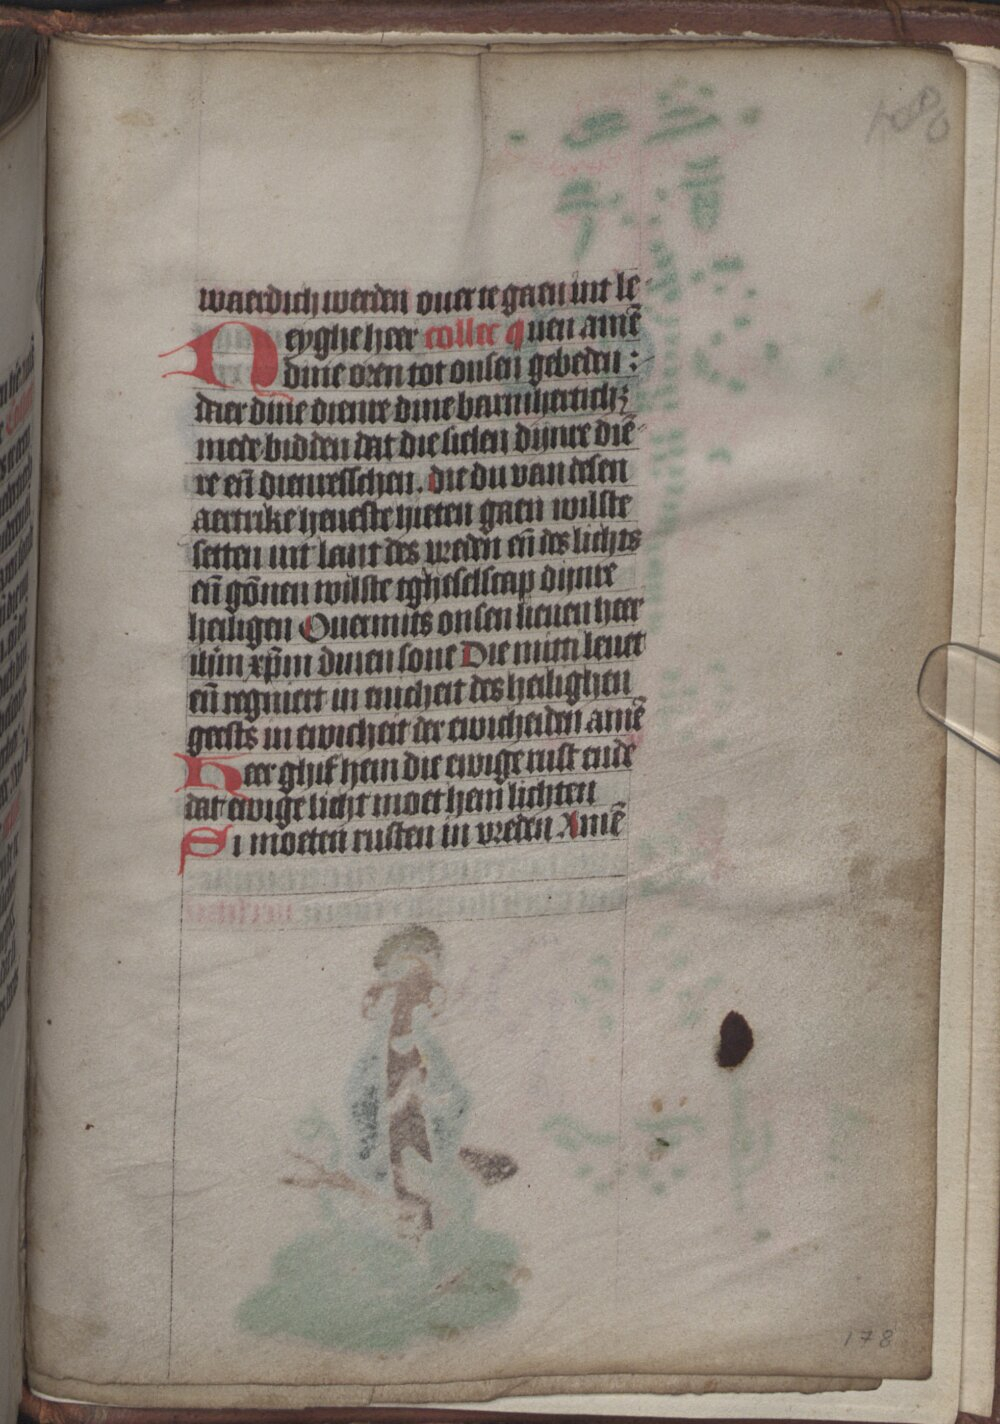 180
waerdich werden ouer te gaen int le
Neyghe heer collec quen amē
dine oren tot onsen gebeden :
daer dine dienre dine barmherticHz
mede bidden dat die sielen dijnre diē
re en̄ dienresschen. die du van desen
aertrike heueste hieten gaen wilste
setten int lant des vreden en̄ des lichts
en̄ gōnen wilste tgheselscap dijnre
heiligen Ouermits onsen lieuen heer
ihm̄ xpm̄ dinen sone Die mitti leuet
en̄ regniert in enicheit des heilighen
geests in ewicheit der ewicheiden amē
Heer ghif hem die ewige rust ende
dat ewige licht moet hem lichten
Si moeten rusten in vreden Amē
178